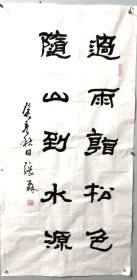 過雨䝨松色
隨山到水源
癸亥秋日張森